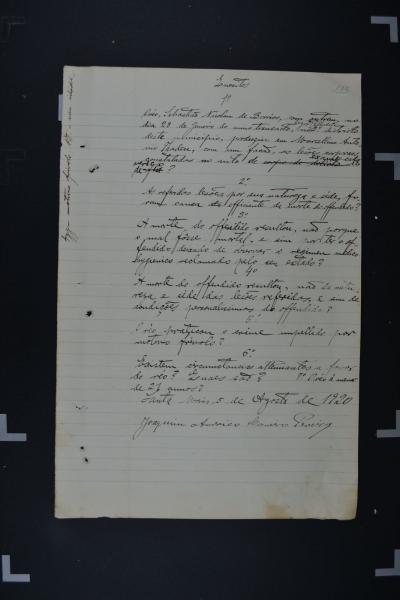 Quesitos
1º
O réo, Sebastião Nicolau de Barros, no
dia 29 de Janeiro do anno transacto, districto
deste municipio, produziu em Marcellino Anto
nio com um facão, as lesões corporaes
constatadas no auto de corpo de delicto
?
2º
As referidas lesões por sua natureza e séde, fo
ram causa efficiente da morte do offendido?
3º
A morte do offendido resultou, não porque
o mal fosse mortal, e sim por ter o of
fendido deixado de observar o regimen medico
hygienico reclamado pelo seu estado?
4º
A morte do offendido resultou, não da natu
reza e séde das lesões referidas, e sim de
condições personalissimas do offendido?
5º
O réo praticou o crime impellido por
motivo frivolo?
6º
Existem circumstancias attenuantes a favor
do réo? Quaes são? 7º O réo é menor
de 21 annos?
de Agosto de 1920
Joaquim Americo